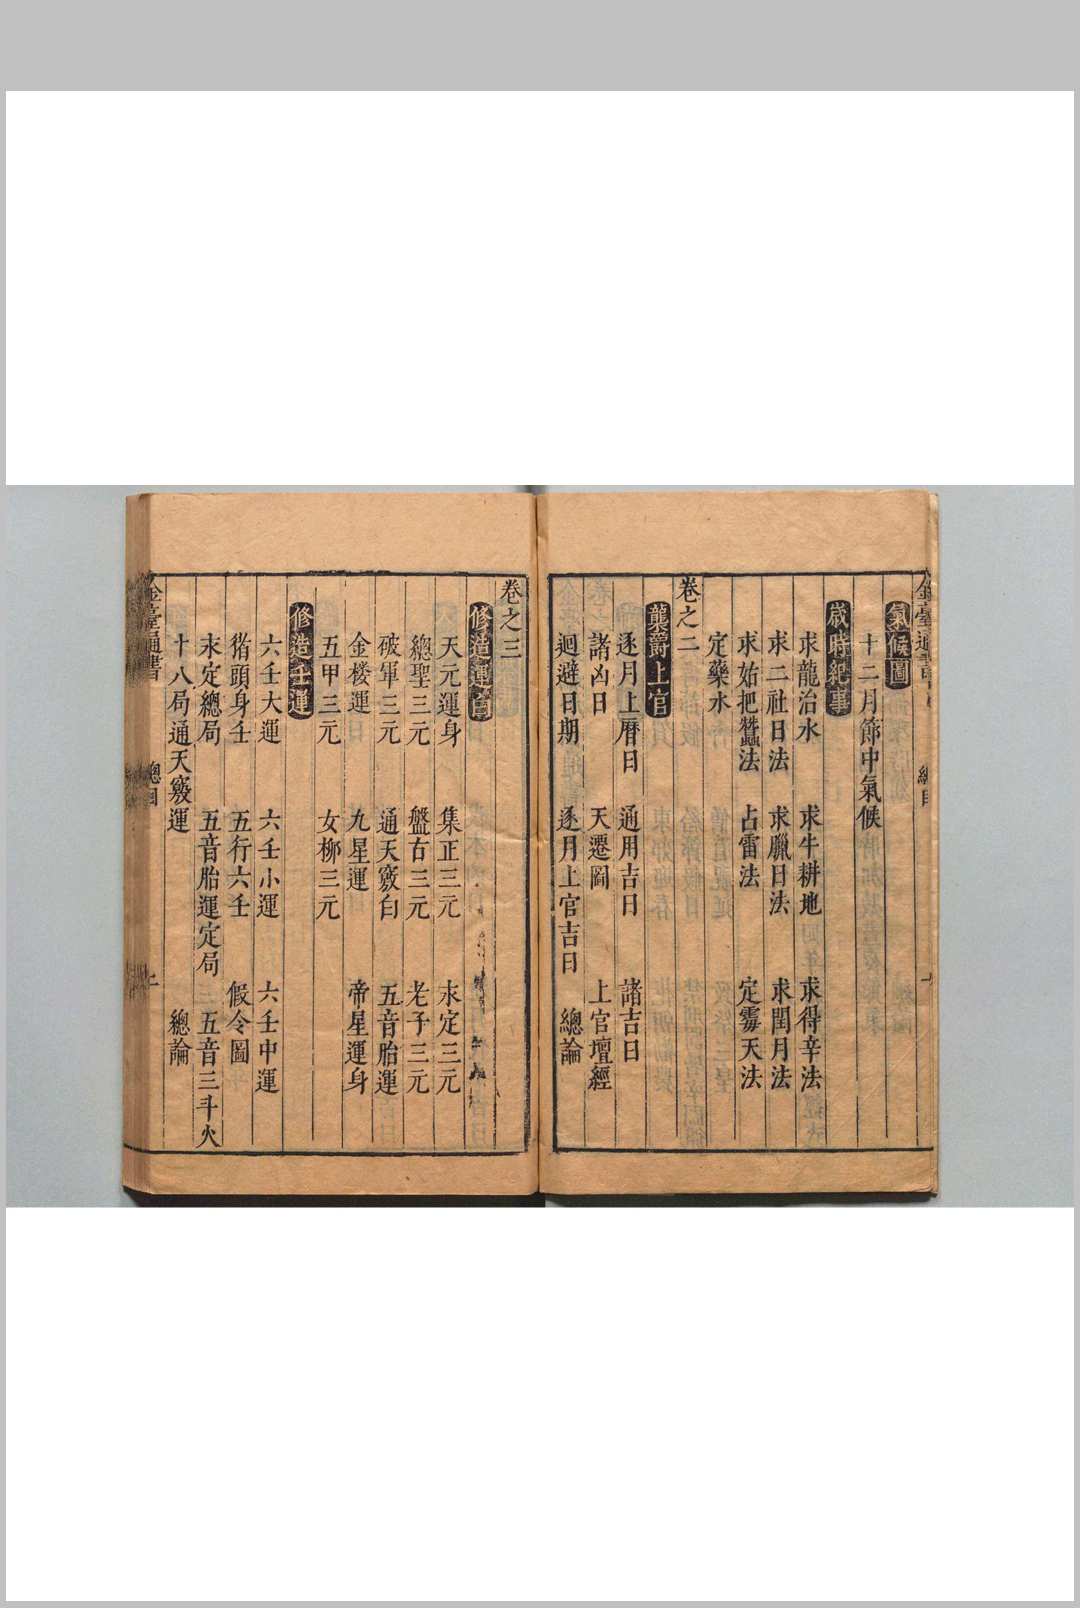 氣候圖
十二月節中氣候
歲時紀事
求龍治水 求牛耕地 求得辛法
求二社日法 求臘日法 求閏月法
求姑把蠶法 占雷法 定雺天法
定藥水
卷之二
襲爵上官
逐月上曆日 通用吉日 諸吉日
諸凶日 天遷圖 上官壇經
迴避日期 逐月上官吉日 總論
卷之三
修造運白
天元運身 集正三元 求定三元
總聖三元 盤古三元 老子三元
破軍三元 通天竅白 五音胎運
金楼運 九星運 帝星運身
五甲三元 女柳三元
修造壬運
六壬大運 六壬小運 六壬中運
偹頭身壬 五行六壬 假令圖
求定總局 五音胎運定局 五音三斗火
十八局通天竅運 總論
金臺通書 總目